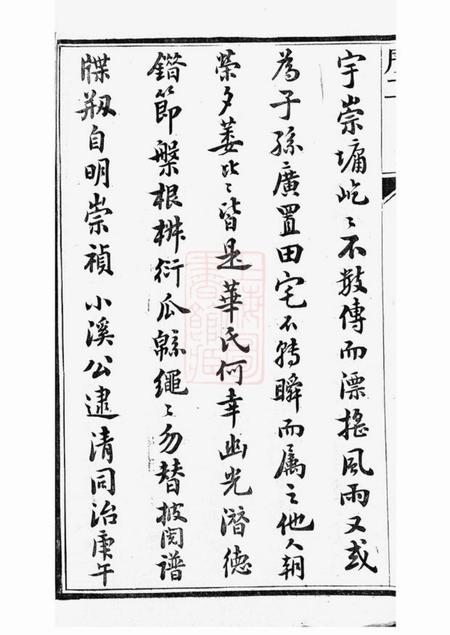 宇崇墉屹〻不數傳而漂搖風雨又或
為子孫廣置田宅不轉瞬而屬之他人朝
榮夕萎比〻皆是華氏何幸幽光潛德
錯節盤根椒衍瓜緜繩〻勿替披閱譜
牒剏自明崇禎小溪公逮清同治庚午